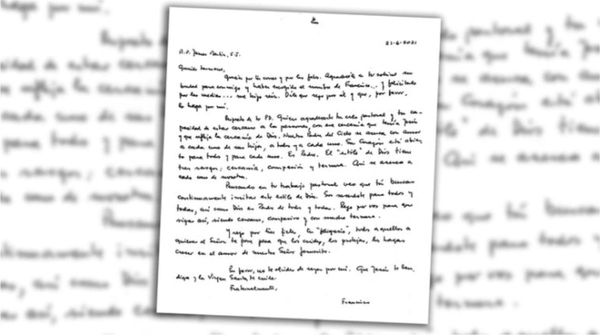 21-6-2021
R.P. James Martin, S.J.
Querido hermano,
Gracias por tu correo y por las fotos. Agradecele a tu sobrino su
bondad para conmigo y haber escogido el nombre de Francisco... y felicitalo
por las medias... me hizo reír. Dile que rezo por él y que, por favor,
lo haga por mí.
Respecto de tu P.S. Quiero agradecerte tu celo pastoral y tu ca-
pacidad de estar cercano a las personas, con esa cercanía que tenía Jesús
y que refleja la cercanía de Dios. Nuestro Padre del Cielo se acerca con amor
a cada uno de sus hijos, a todos y a cada uno. Su corazón está abier-
to para todos y para cada uno. Es Padre. El "estilo" de Dios tiene
tres rasgos: cercanía, compasión y ternura. Así se acerca a
cada uno de nosotros.
Pensando en tu trabajo pastoral veo que tú buscas
continuamente imitar este estilo de Dios. Sos sacerdote para todos y
todas, así como Dios es Padre de todos y todas. Rezo por vos para que
sigas así, siendo cercano, compasivo y con mucha ternura.
Y rezo por tus fieles, tus "feligreses", todos aquellos a
quienes el Señor te pone para que los cuides, los protejas, los hagas
crecer en el amor de nuestro Señor Jesucristo.
Por favor, no te olvides de rezar por mí. Que Jesús te ben-
diga y la Virgen Santa te cuide.
Fraternalmente,
Francisco